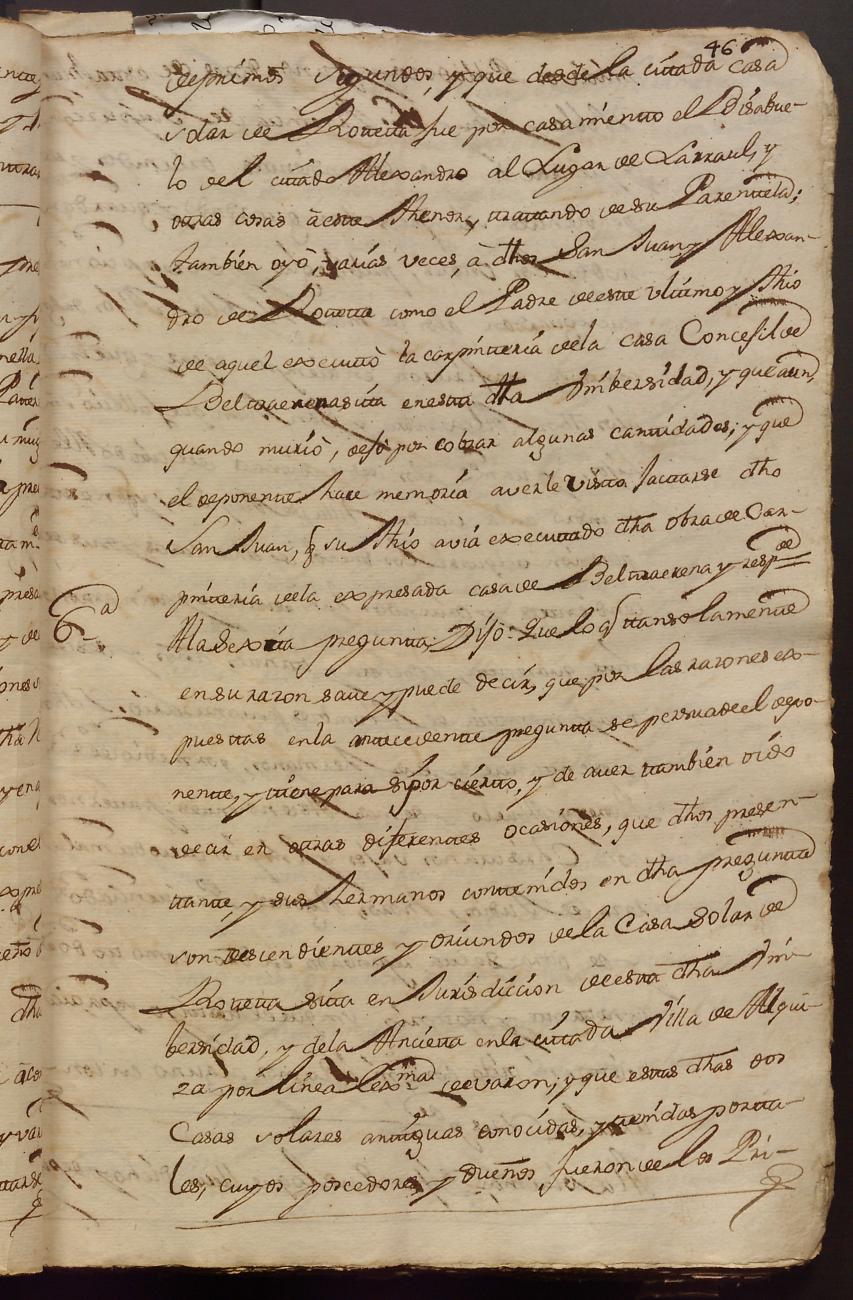 46
de primos segundos, y que desde la citada casa
solar de Rovetta fue por casamiento el Bisabue-
lo del citado Alexandro al Lugar de Larraul, y
otras cosas à este thenor, tratando de su Parentela;
tambien oyò, varias veces, à dhos San Juan, y Alexan-
dro de Rovetta como el Padre de este ultimo y Hijo
de aquel executò la carpinteria de la casa Concejil de
Beltraerena sita en esta dha Vnibersidad, y que aun,
quando muriò, dejò por cobrar algunas cantidades; y que
el deponente hace memoria averle visto jactarse dho
San Juan, q su Hijo avia executado dha obra de Car-
pinteria de la expresada casa de Beltraerena y respde
6a
Ala Sexta pregunta, Dijo: Que lo q tan solamente
en su razon save y puede decir, que por las razones ex-
puestas en la antecedente pregunta se persuade el depo-
nente, y tiene para si por cierto, y de aver tambien oido
decir en otras diferentes ocasiones, que dhos presen-
tante, y sus hermanos contenidos en dha pregunta
son descendientes, y oriundos de la Casa Solar de
Rovetta sita en Jurisdiccion de esta dha Vni-
bersidad, y de la Ancieta en la citada Villa de Alqui-
za por linea lexma de varon; y que estas dhas dos
Casas solares antiguas conocidas, y tenidas por ta-
les, cuyos poseedores y dueños fueron de los Pri-